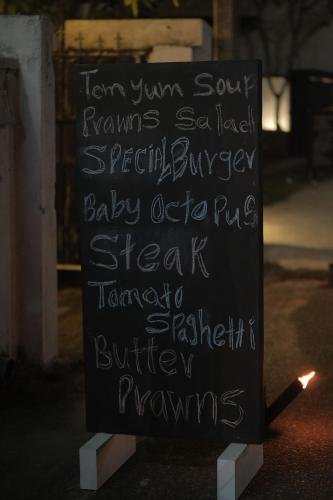 Tom Yum Soup
Prawns Salad
SPECIAL Burger
Baby OctoPuS
Steak
Tomato
Spaghetti
Butter
Prawns